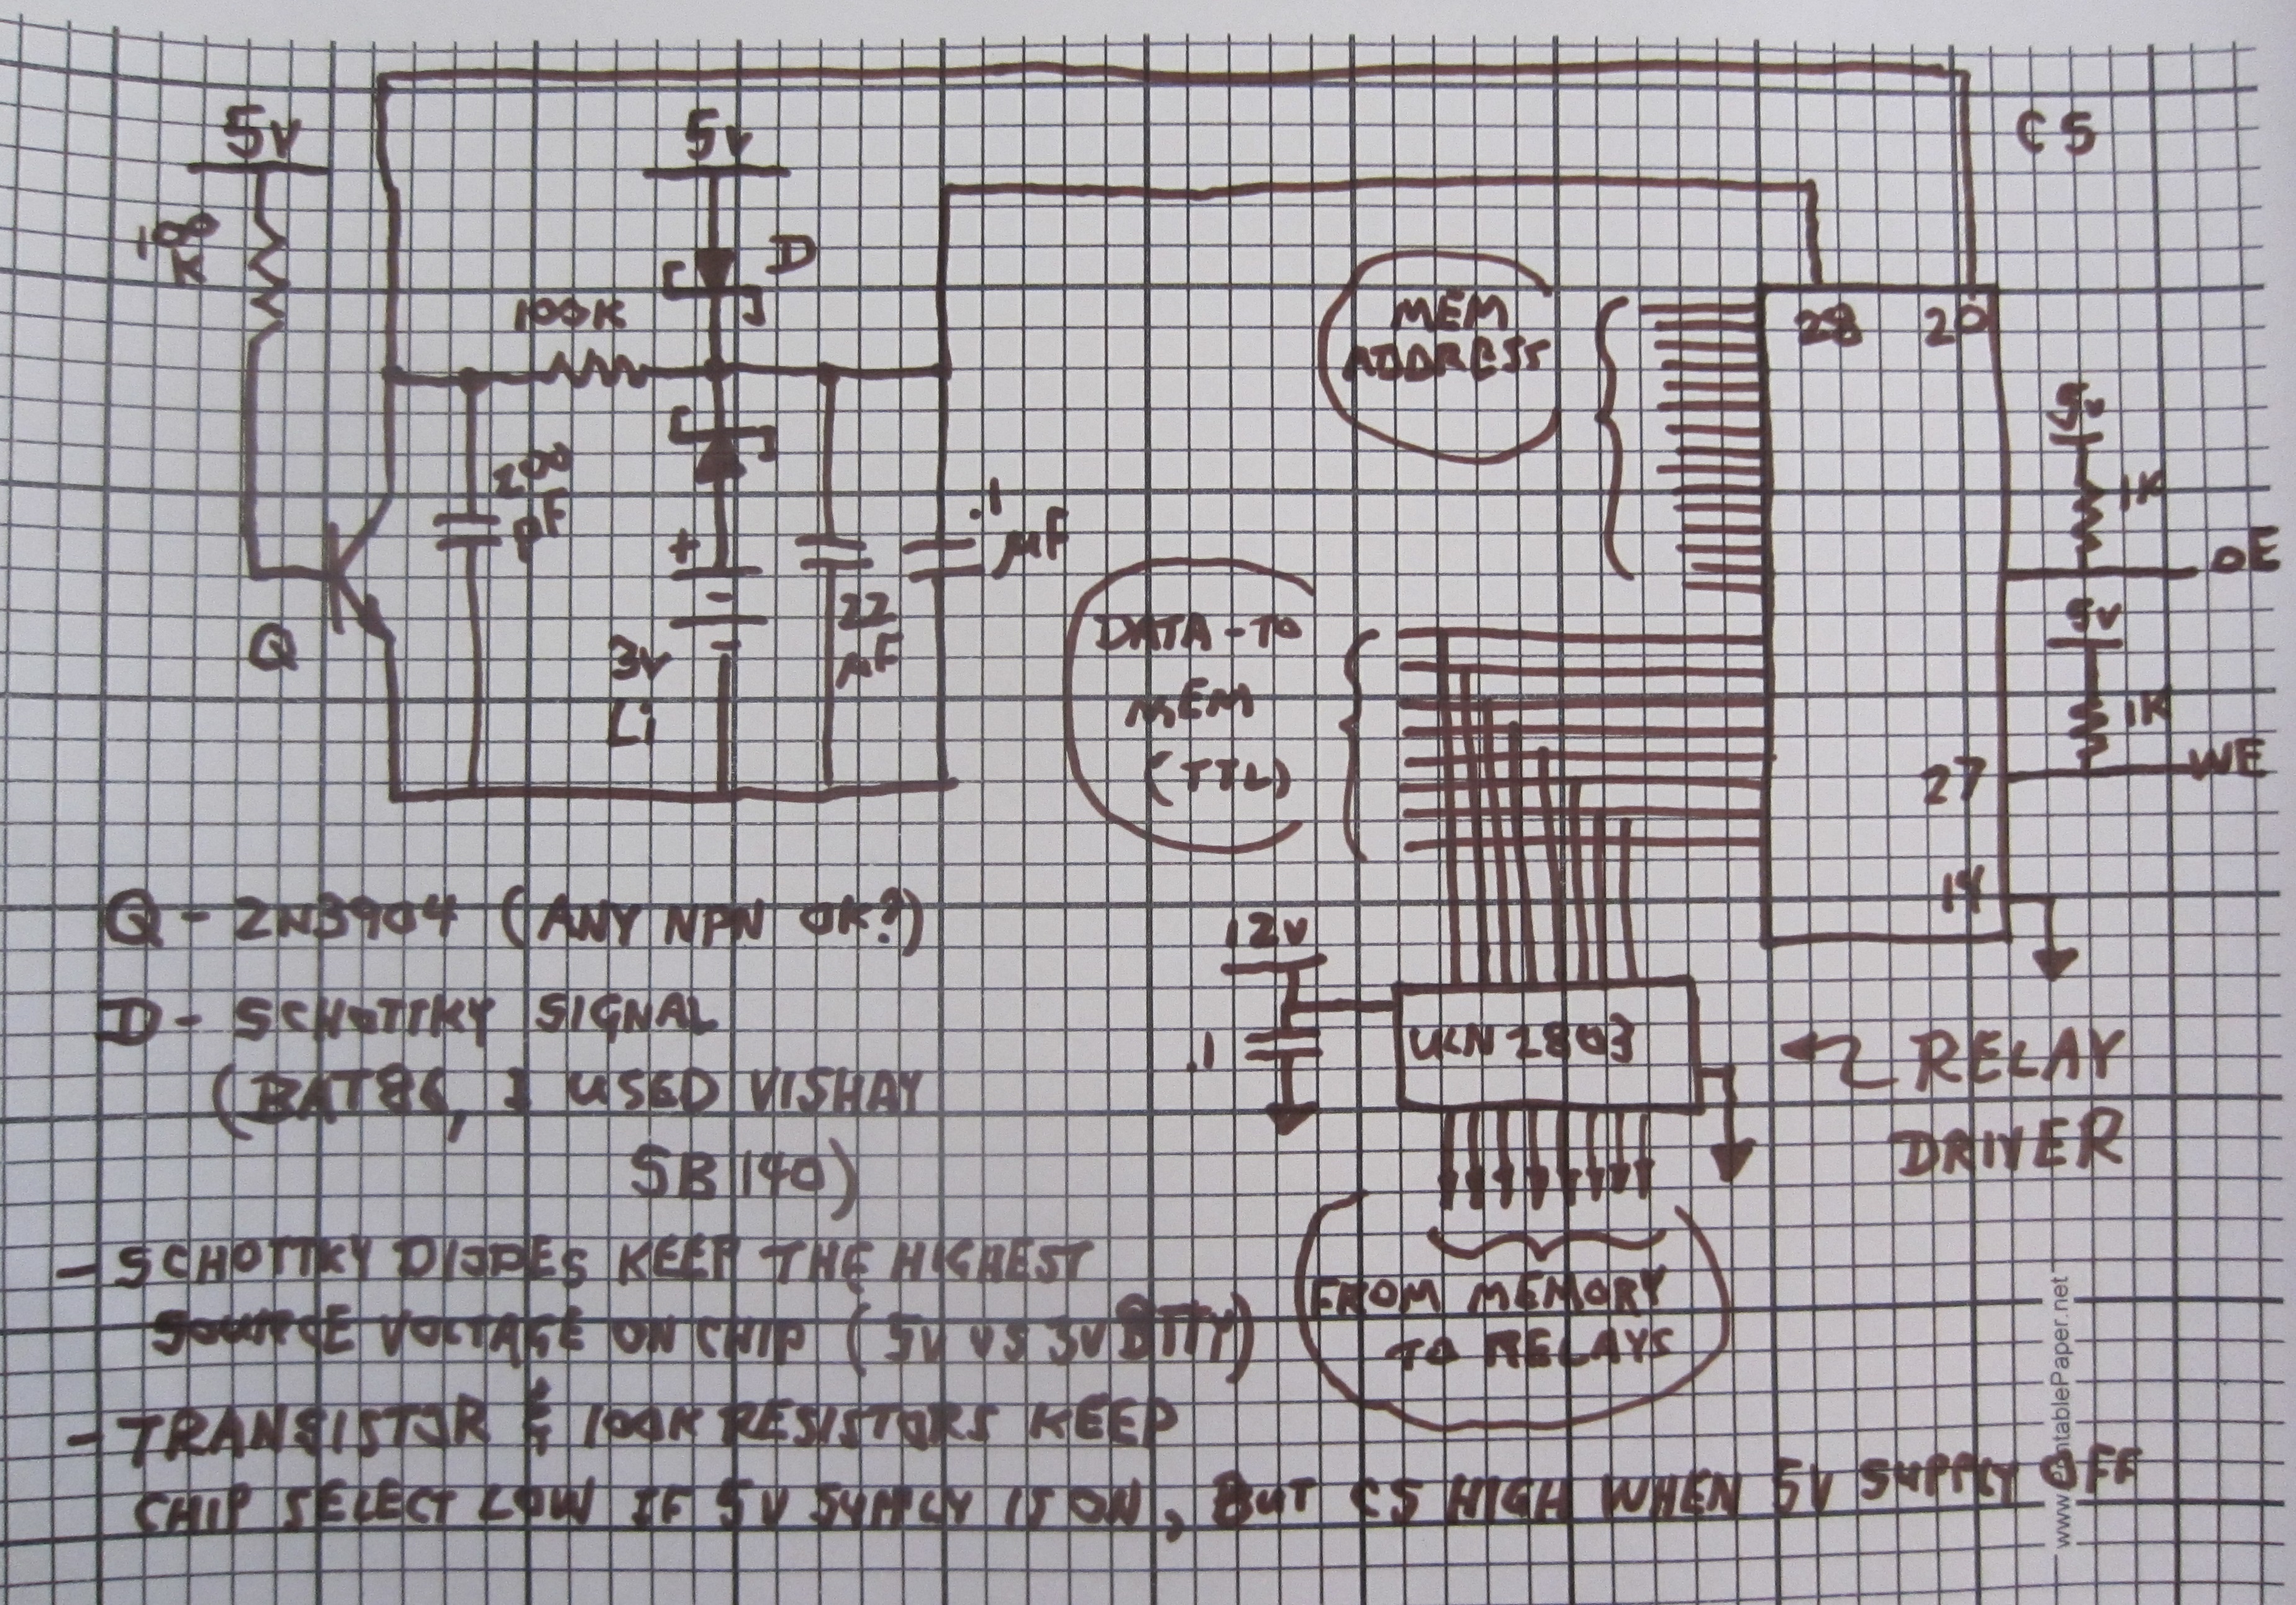 5v
5v
CS
100
K
D
100K
28 20
MEM
ADDRESS
5v
1K
200
pF
+
.1
µF
OE
5v
Q
3v
Li
22
µF
DATA-TO
MEM
(TTL)
1K
WE
27
14
Q - 2N3904 (ANY NPN OK?)
12v
D - SCHOTTKY SIGNAL
.1
UCN2803
RELAY
DRIVER
(BAT86, I USED VISHAY
SB140)
- SCHOTTKY DIODES KEEP THE HIGHEST
SOURCE VOLTAGE ON CHIP (5V VS 3V BTTY)
FROM MEMORY
TO RELAYS
- TRANSISTOR & 100K RESISTORS KEEP
CHIP SELECT LOW IF 5V SUPPLY IS ON, BUT CS HIGH WHEN 5V SUPPLY OFF